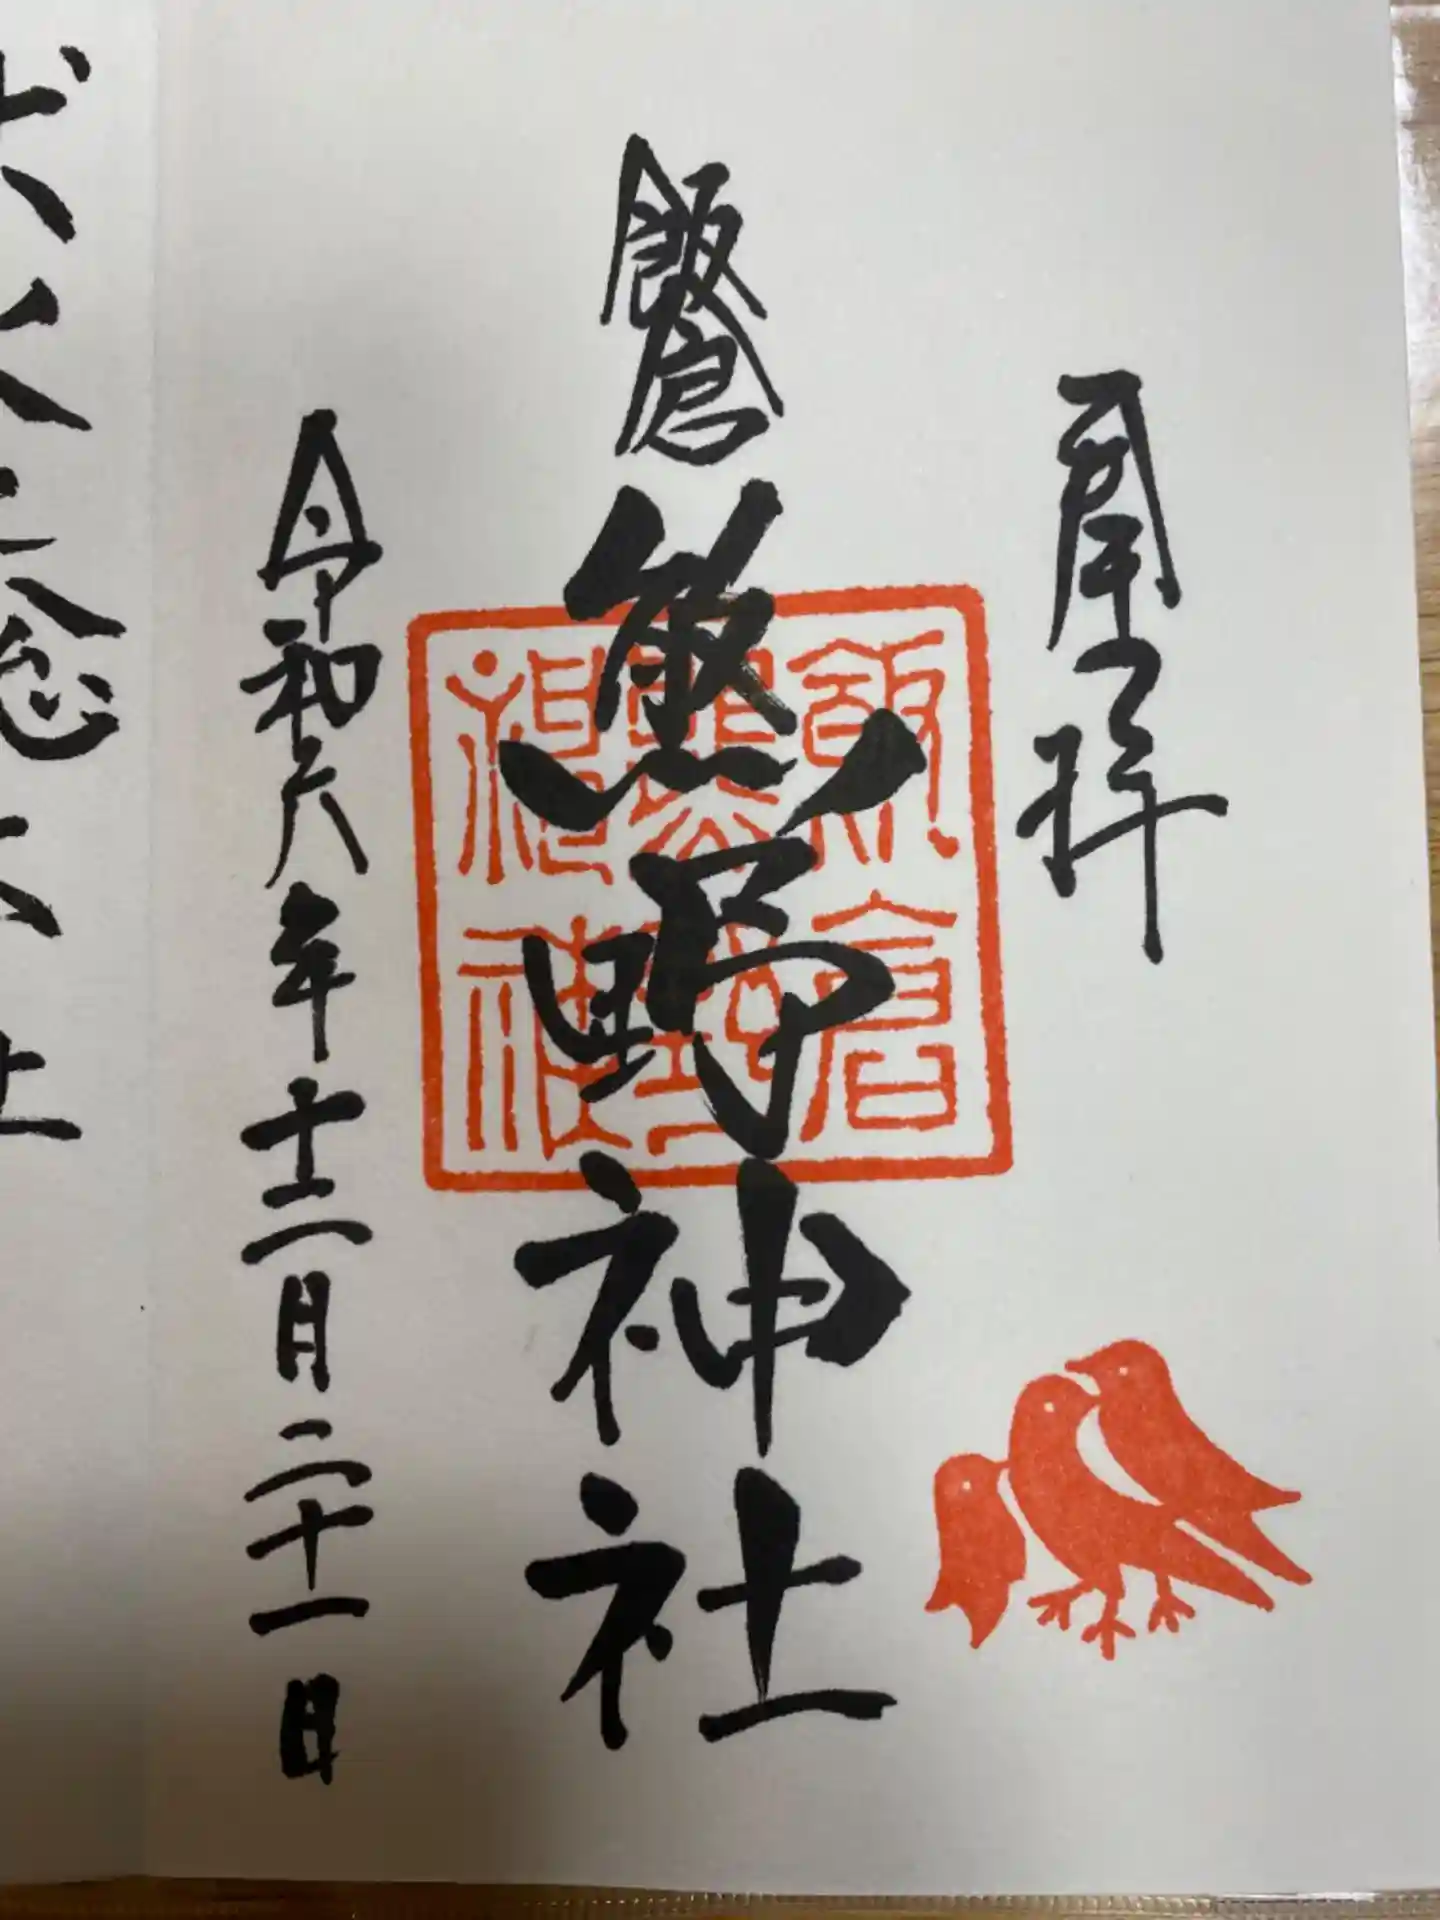 奉拝
飯倉
熊野神社
飯倉
熊野
神
令和六年十二月二十一日